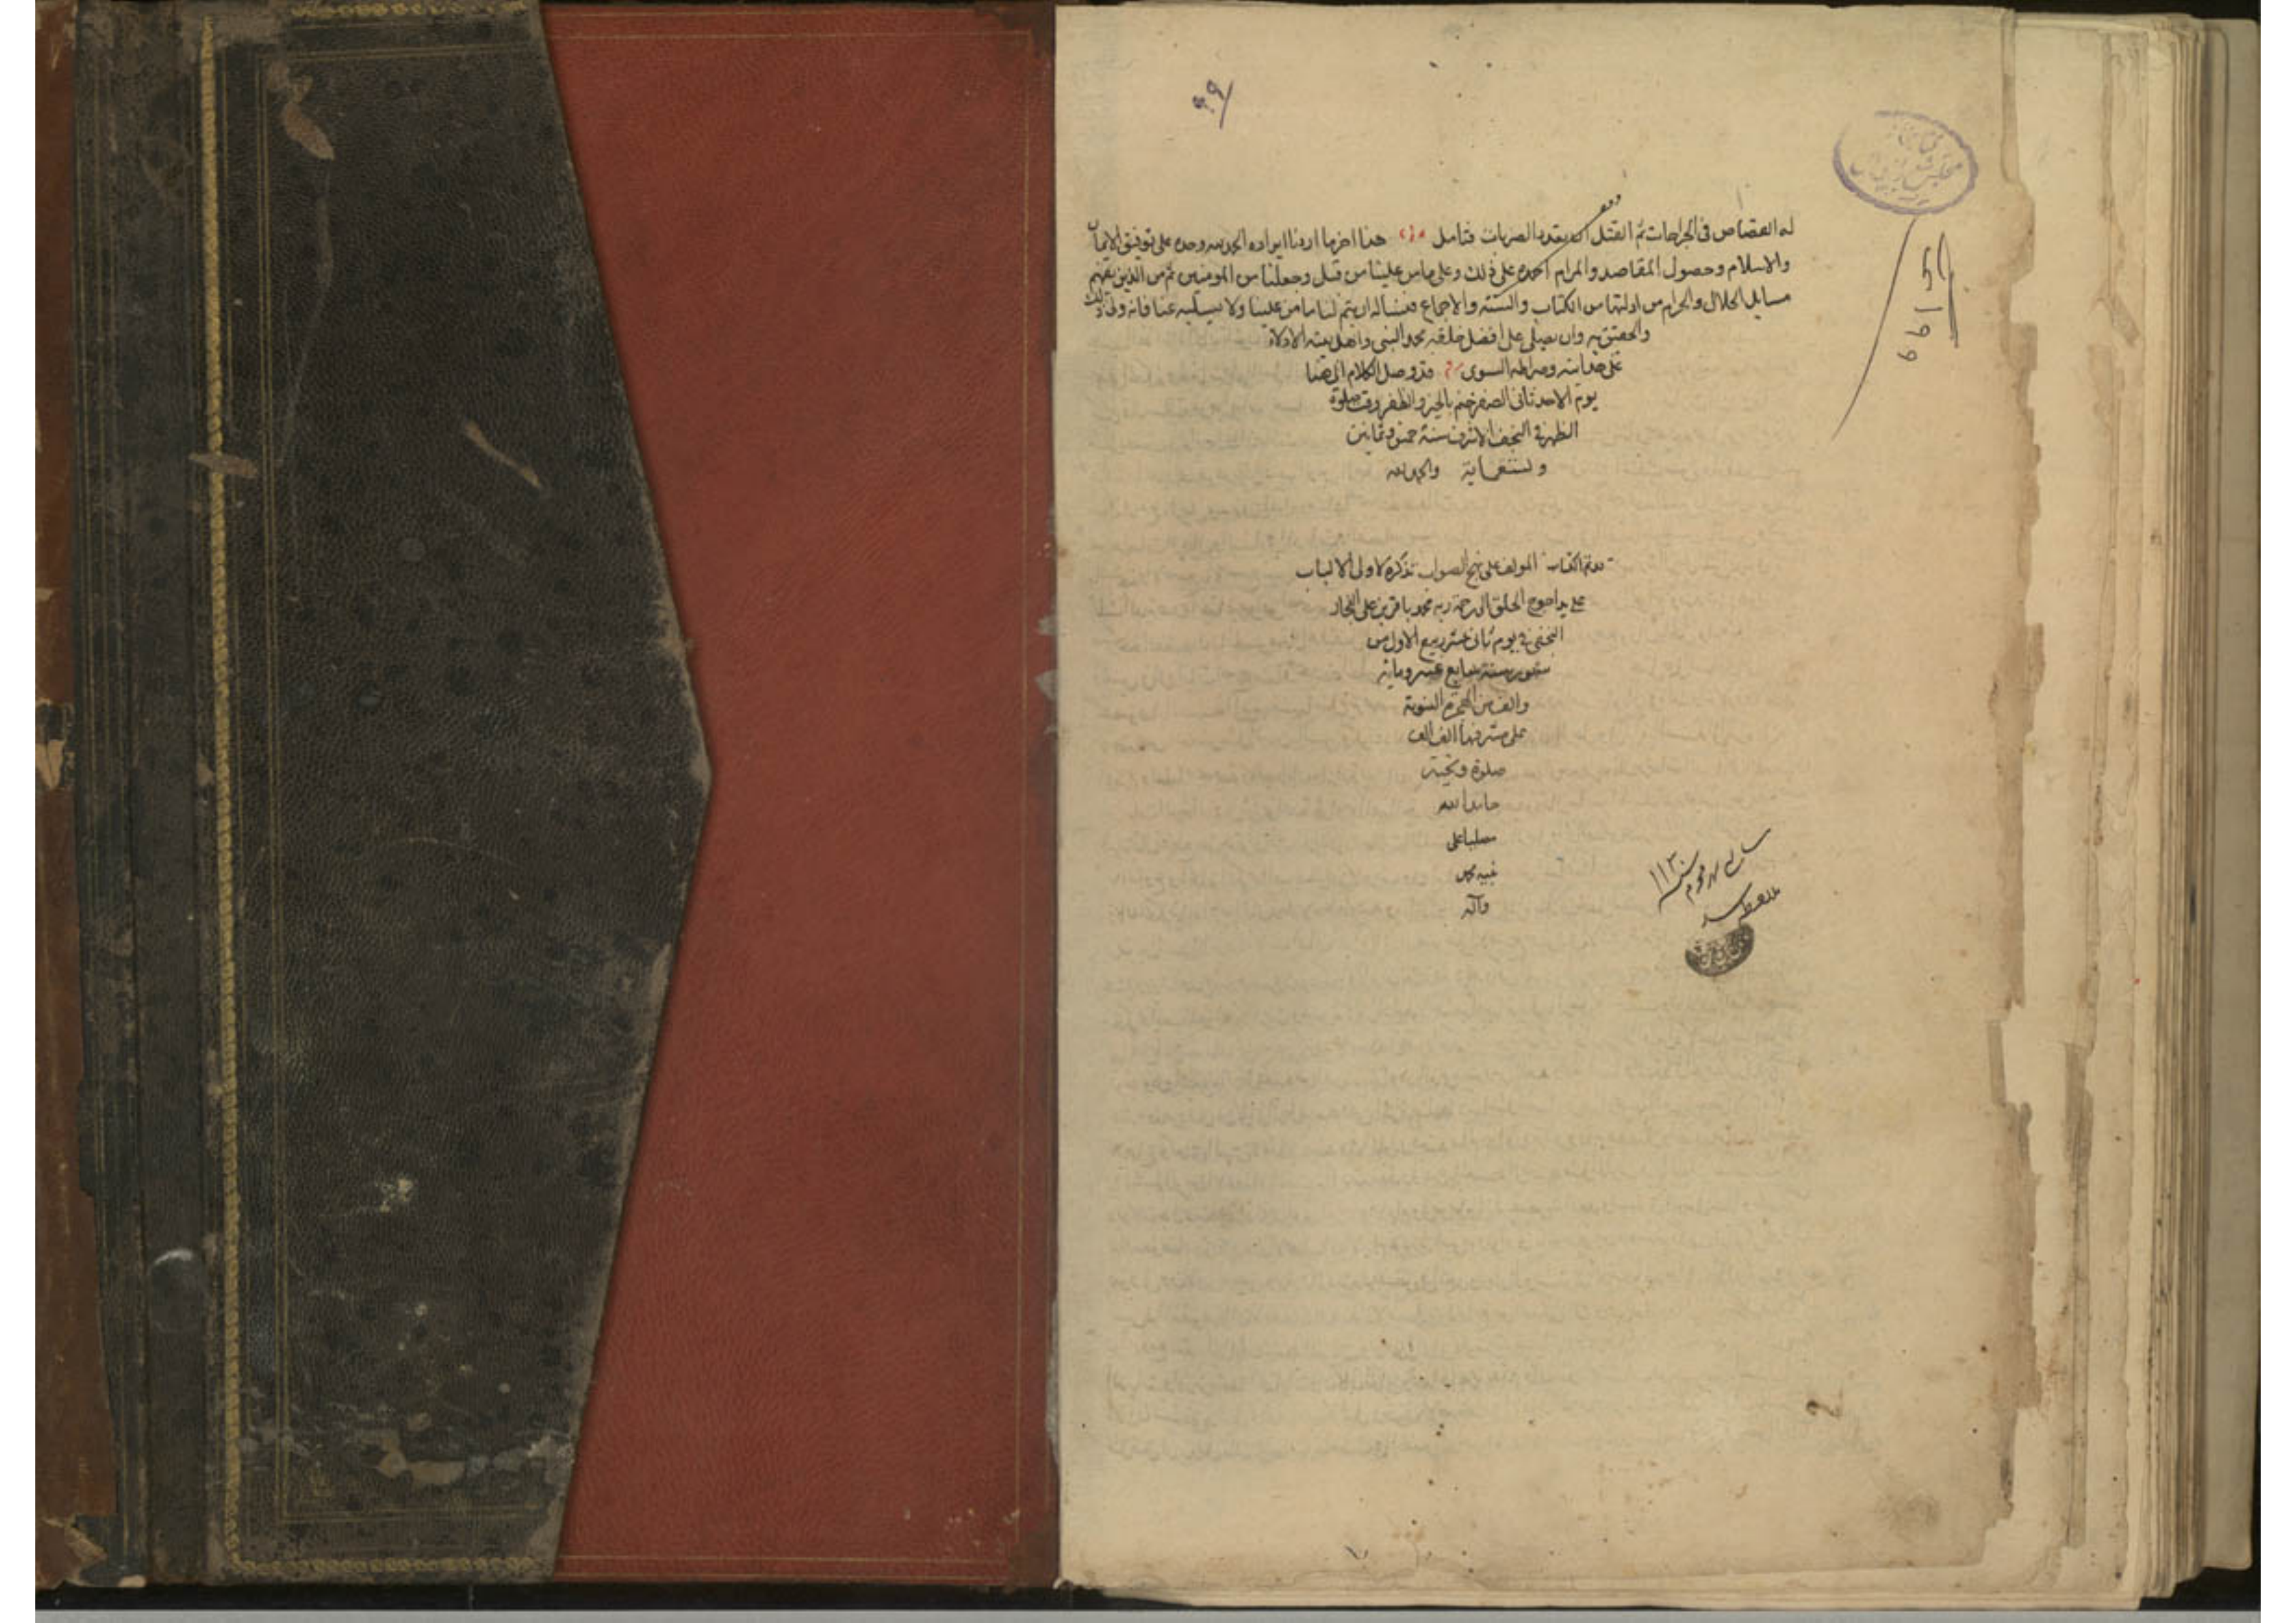 ۹۹
له القصاص فى الجراحات ثم القتل ان تعدد الضربات فتامل هذا اخر ما اردنا ايراده الحمد لله وحده على توفيق الايمان
والاسلام وحصول المقاصد والمرام احمده على ذلك وعلى ما من علينا من قبل وجعلنا من المومنين ثم من الذين يفهم
مسايل الحلال والحرام من ادلتها من الكتاب والسنة والاجماع فنساله ان يتم لنا ما من علينا ولا يسلبه عنا فانه ولى ذلك
والحقيق به وان يصلى على افضل خلقه محمد النبى واهل بيته الادلاء
على هدايته وصراطه السوى قد وصل الكلام الى هنا
يوم الاحد ثانى الصفر ختم بالخير والظفر وقت صلوة
الظهر فى النجف الاشرف سنة خمس وثمانين
وتسعماية والحمد لله
قد تم الكتاب المولف على نهج الصواب تذكرة لاولى الالباب
على يد احوج الخلق الى رحمة ربه محمد باقر بن على النجار
النجفى فى يوم ثانى عشر ربيع الاول من
شهور سنة سابع عشر وماية
والف من الهجرة النبوية
على مشرفها الف الف
صلوة وتحية
حامدا لله
مصليا على
نبيه محمد
وآله
۵۱۹۹